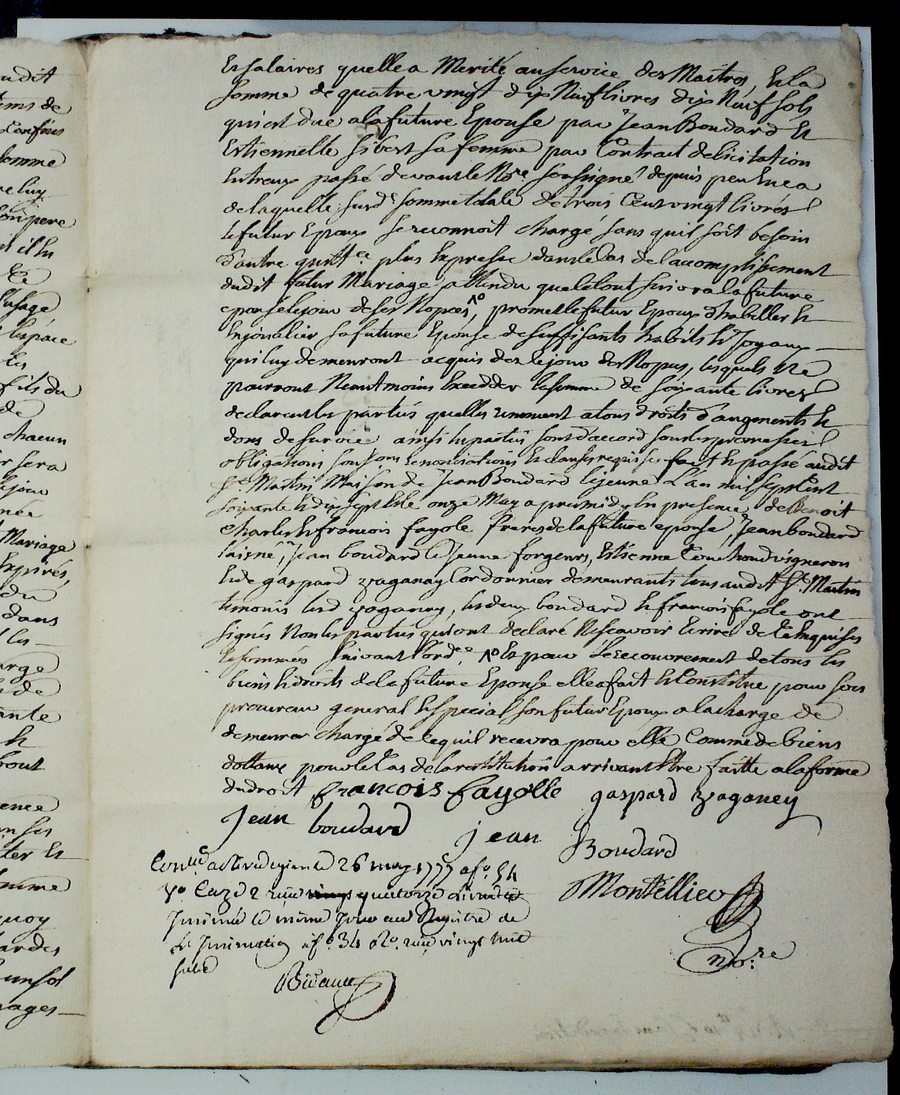 udit
ems de
Confins
omme
re luy
son pere
il lu
Ce
lusage
lespace
les
fils du
de
chacun
sera
lajour
née
Mariage
Expirés,
du
dans
les
arge
de
ante
et
bout

ence
en ses
ter Et
omme
quoy
ardes
un sol
nages
Et salaires quelle a Merité au service des Maitres Et la
somme de quatre vingt dix Neuf livres dix Neuf sols
qui est due a la future Epouse par Jean Boudard Et
Estiennette sibert sa femme par Contrat delicitation
Entreux passé devant le Nore soussigné depuis peu Enca
de laquelle susd. somme totale de trois Cent vingt livres
le futur Epoux se reconnoit chargé sans quil soit besoin
d'autre quittce plus Expresse dans le Cas de l'accomplissement
dudit futur Mariage attendu que letout serivra la future
epouse lejour de ses Nopces, promet le futur Epoux d'habiller Et
Enjoualier sa future Epouse de suffisants habits Et Joyaux
qui luy demeuront acquis des le jour des Nopces, lesquels Ne
pourront Neantmoins Exedder la somme de soixante livres
declarent les parties quelles renoncent a tous droits d'augments Et
dons de survie ainsi les parties sont d'accord sous les promesses
obligations soumissions renonciations Et clauses requises fait Et passé audit
St. Martin Maison de Jean Boudard lejeune L'an mil sept Cent
soixante Et dix sept Et le onze May apres midy En presence de Benoit
Charle Et francois fayole freres de la future epouse, Jean boudard
laisné, Jean boudard le Jeune forgeurs, Estienne vigneron
Et de gaspard Zaganay Cordonnier demeurants tous audit St. Martin
temoins led. Zaganay, les deux boudard Et francois fayole ont
signés Non les parties qui ont declaré Nescavoir Ecrire de ce Enquises
Et sommées suivant l'ordce. Et pour le recouvrement de tous les
biens Et droits de la future Epouse elle a fait Et Constitue pour son
procureur general Et special son futur Epoux a la charge de
demeurer chargé de ce quil recevra pour elle Comme de biens
dottaux pour le Cas de la restitution arrivant Etre faitte a la forme
du droit francois fayolle gaspard zaganey
Jean boudard jean Boudard
Conlé le 26 may 1777 fo. 34
Vo. Caze 2 quatorze
Jnsinué le même jour au Registre de
fo. 34 vingt
sols
Montellier
Nore